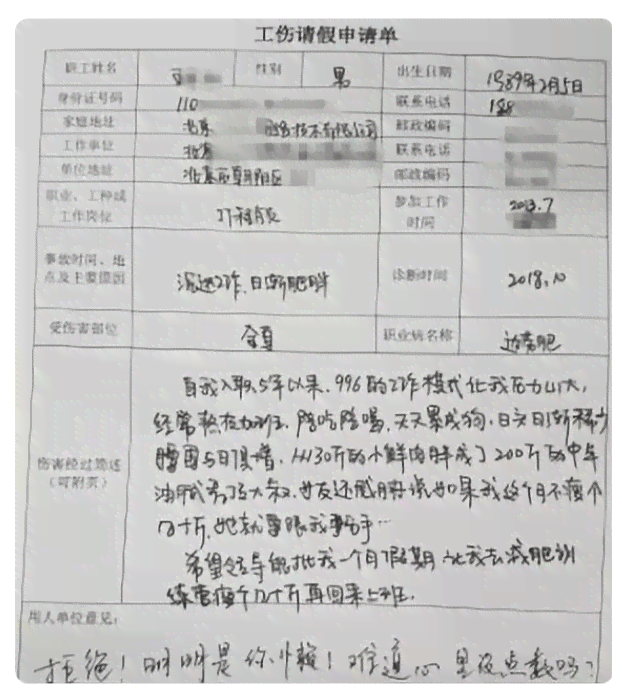 工伤请假申请单
职工姓名 性别 男 出生日期 1989年2月5日
身份证号码 110 联系电话 188
家庭地址 北京 网络技术有限公司 邮政编码
工作单位 北京 联系电话
单位地址 北京市朝阳区 邮政编码
职业、工种或工作岗位 工程师 参加工作时间 2013.7
事故时间、地点及主要原因 沉迷工作,日渐肥胖 诊断时间 2018.10
受伤害部位 全身 职业病名称 过劳肥
伤害经过简述(可附页)
自我入职5年以来,996的工作模式让我压力山大,
经常熬夜加班,陪吃陪喝,天天累成狗,日头日渐稀少
腰围与日俱增,从130斤的小鲜肉胖成了200斤的中年
油腻大叔,女友还威胁说如果我这个月不瘦个
几十斤,她就要跟我分手…
希望领导能批我一个月假期让我去减肥训
练营瘦个几十斤再回来上班.
用人单位意见:
拒绝!明明是你懒!难道心里没点数吗?